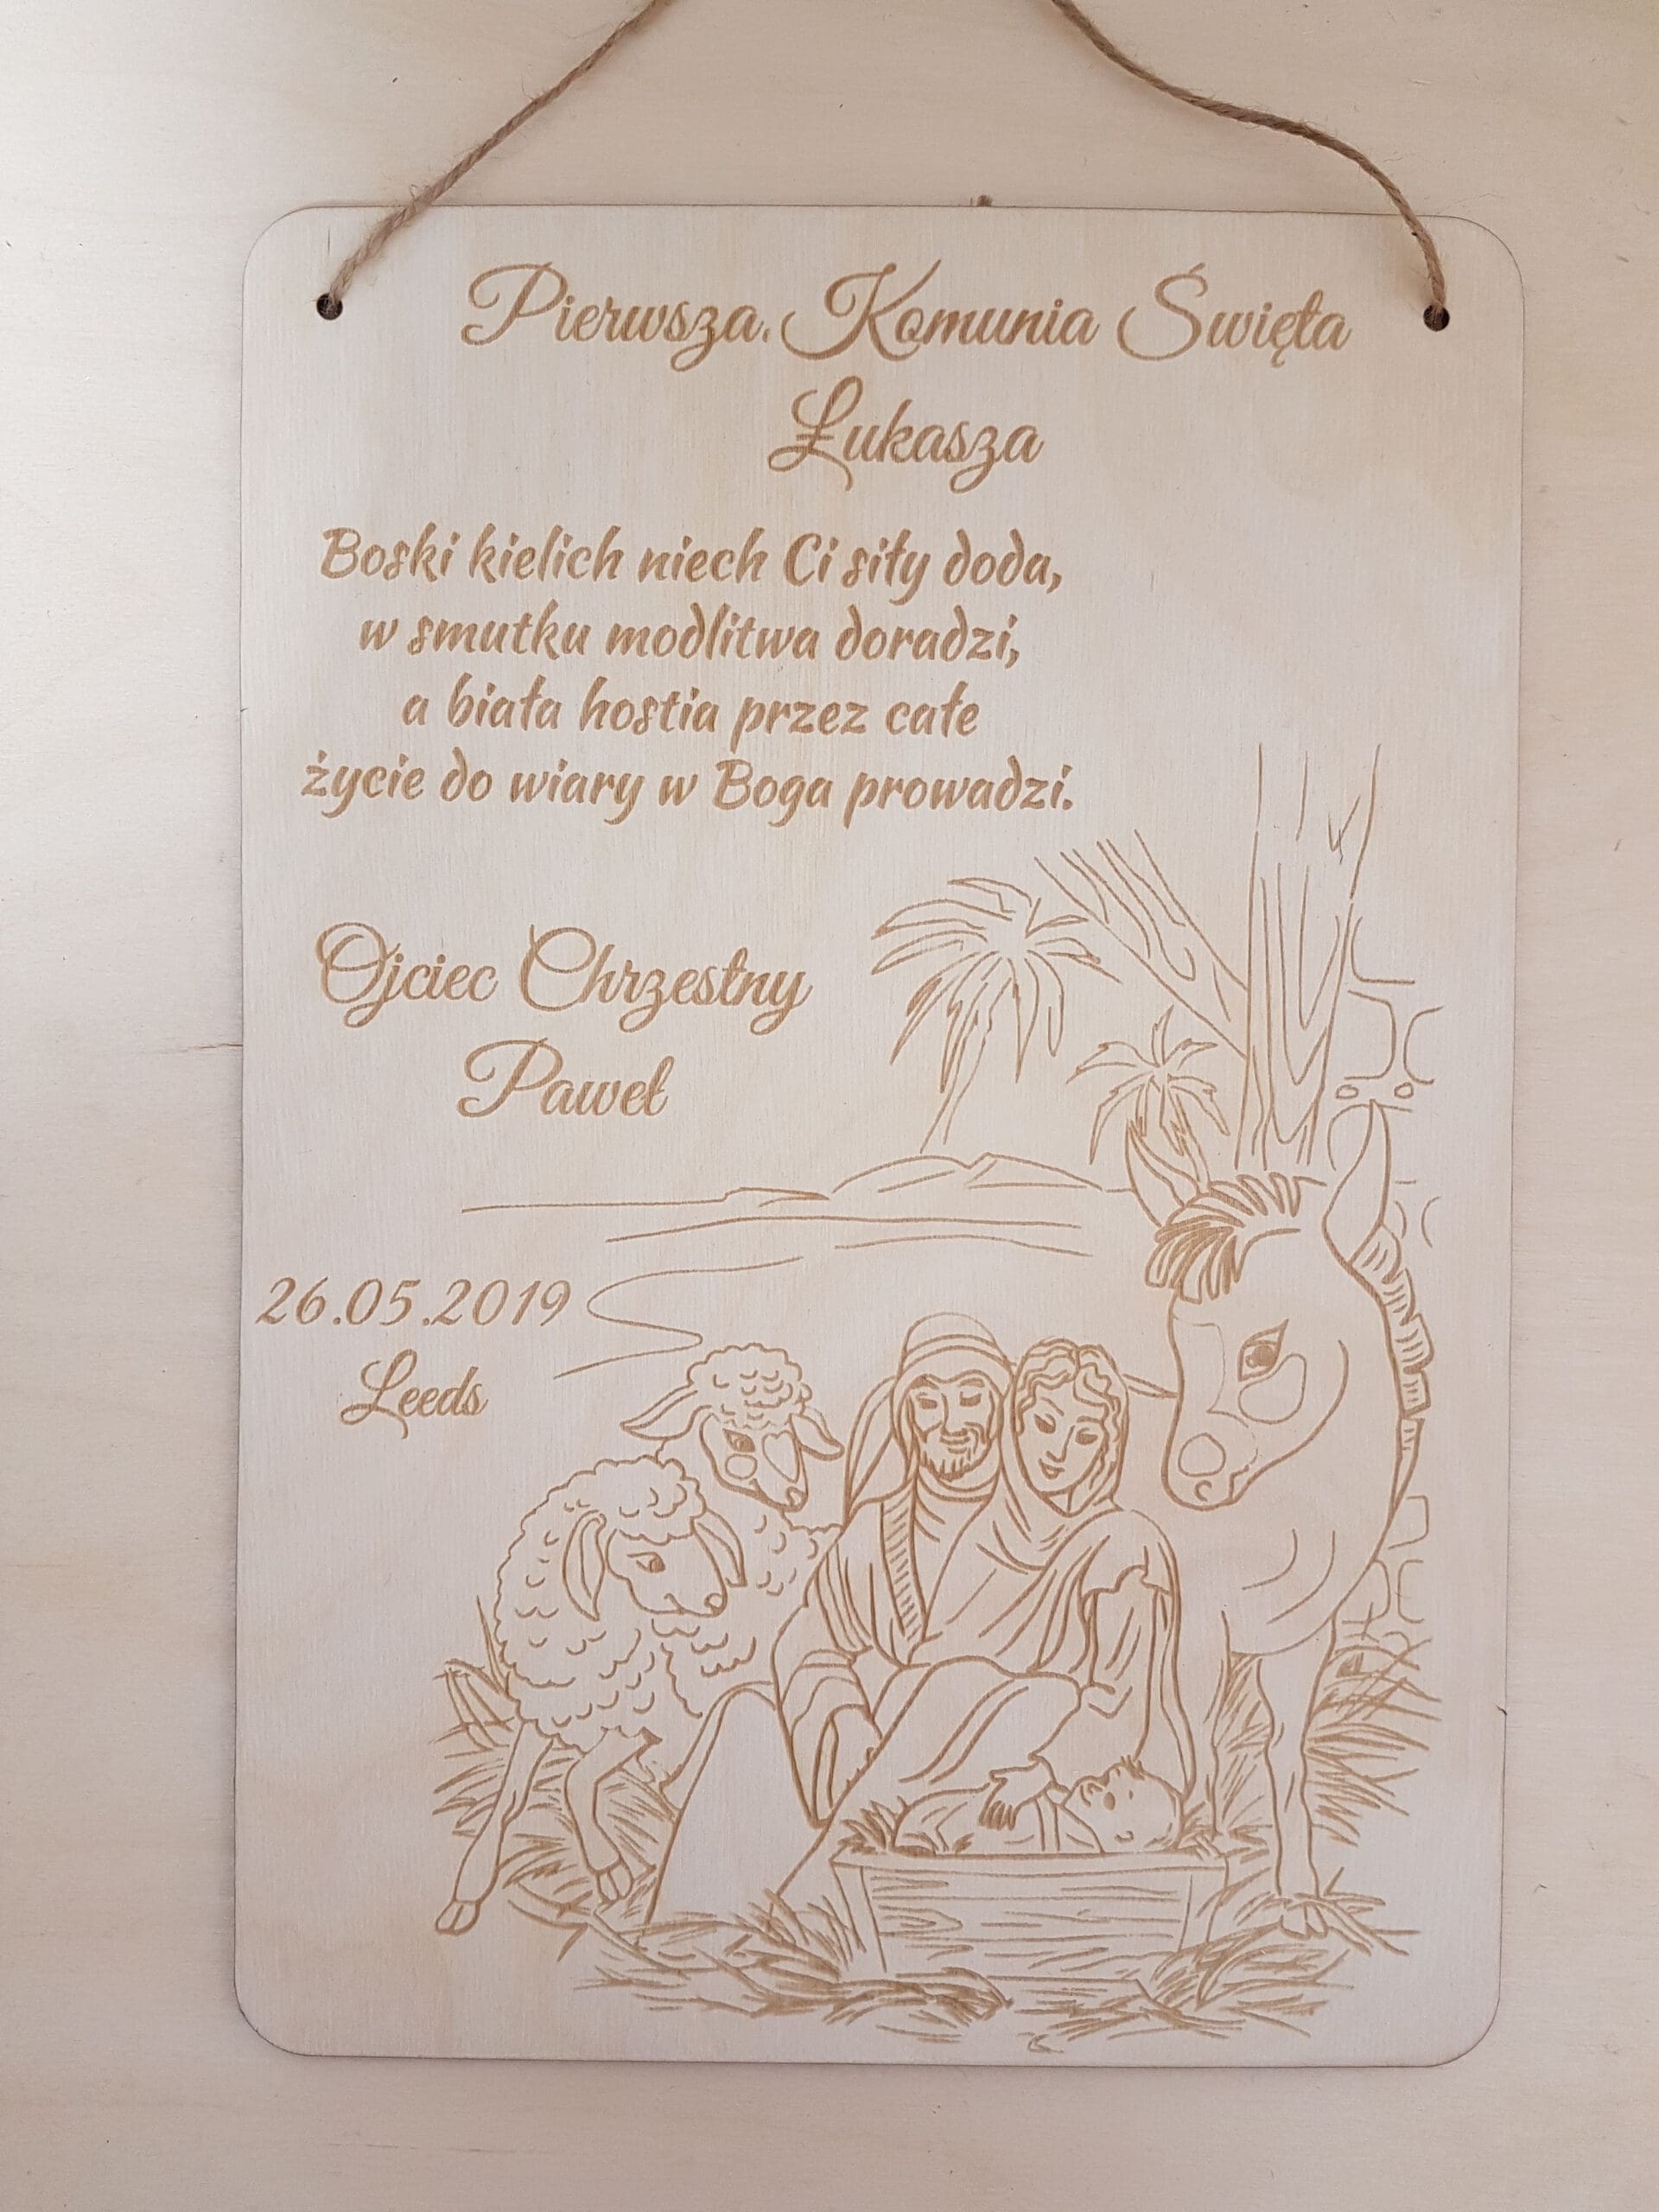 Pierwsza Komunia Święta
Łukasza
Boski kielich niech Ci siły doda,
w smutku modlitwa doradzi,
a biała hostia przez całe
życie do wiary w Boga prowadzi.
Ojciec Chrzestny
Paweł
26.05.2019
Leeds